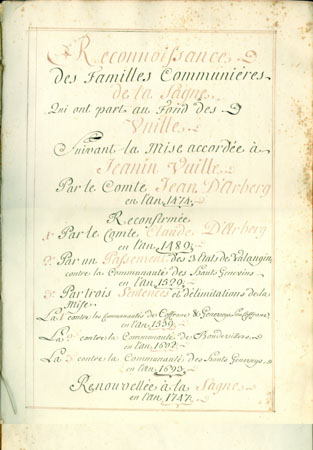 Reconnoissance
des Familles Communiéres
de la Sagne
Qui ont part au Fond des
Vuille
Suivant la Mise accordée à
Jeanin Vuille
Par le Comte Jean D'Arberg
en l'an 1474.
Reconfirmée
1º Par le Comte Claude D'Arberg
en l'an 1489.
2º Par un Passement des 3 Etats de Valangin,
contre la Communauté des Hauts Genevois
en l'an 1529.
3º Par trois Sentences et délimitations de la
Mise.
La 1e contre les Communautés de Coffrane & Geneveys
en l'an 1539.
La 2e contre la Communauté de Boudevilliers
en l'an 1692.
La 3 contre la Communauté des Hauts Geneveys
en l'an 1693.
Renouvellée à la Sagne
en l'an 1747.